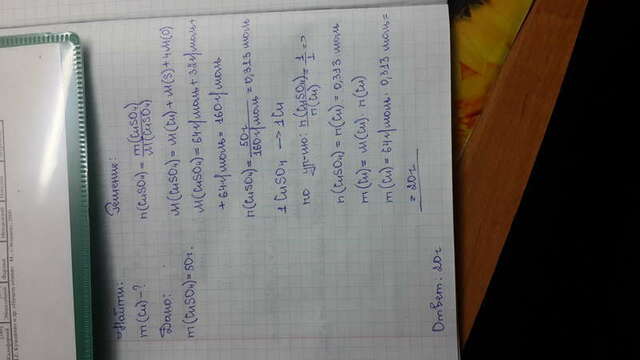 Найти:
m(Cu)-?
Дано:
m(CuSO4)=50г.
Решение:
n(CuSO4)=m(CuSO4)/M(CuSO4)
M(CuSO4)=M(Cu)+M(S)+4M(O)
M(CuSO4)=64г/моль+32г/моль+
+64г/моль=160г/моль
n(CuSO4)=50г/160г/моль=0,313моль
1CuSO4 → 1Cu
по ур-нию: n(CuSO4)/n(Cu)=1/1=>
n(CuSO4)=n(Cu)=0,313моль
m(Cu)=M(Cu)·n(Cu)
m(Cu)=64г/моль·0,313моль=
=20г
Ответ: 20г